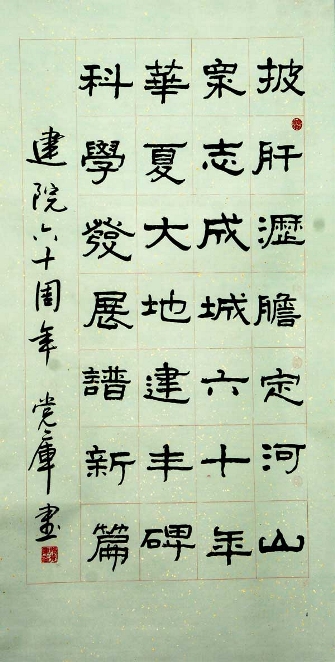 披肝瀝膽定河山
眾志成城六十年
華夏大地建丰碑
科學發展譜新篇
建院六十周年 党庫書